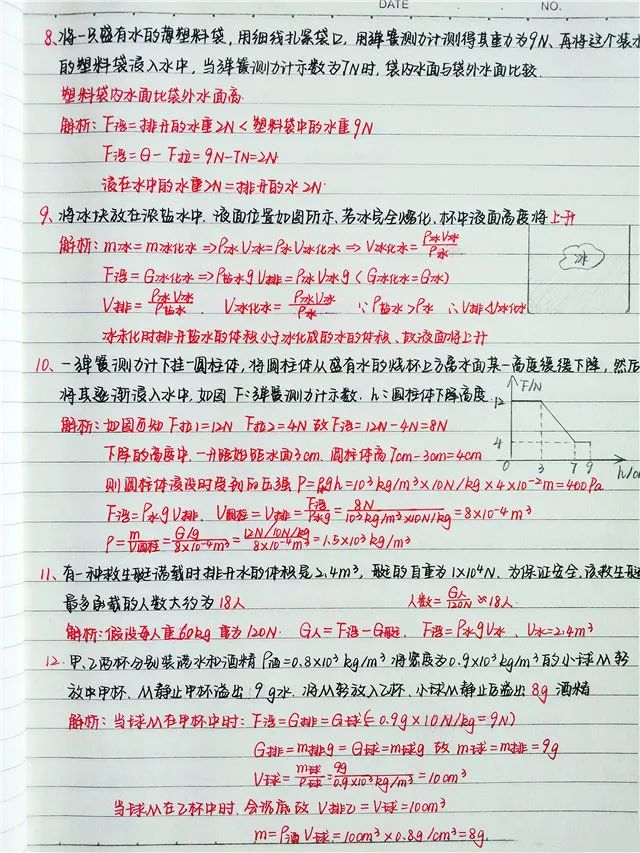 DATE NO.
8、将一只盛有水的薄塑料袋,用细线扎紧袋口,用弹簧测力计测得其重力为9N、再将这个装水
的塑料袋浸入水中,当弹簧测力计示数为7N时,袋内水面与袋外水面比较.
塑料袋内水面比袋外水面高.
解析:F浮=排开的水重2N<塑料袋中的水重9N
F浮=G-F拉=9N-7N=2N
浸在水中的水重2N=排开的水2N
9、将冰块放在浓盐水中.液面位置如图所示,若冰完全熔化、杯中液面高度将上升
冰
解析:m冰=m冰化水⇒ρ冰V冰=ρ水V冰化水⇒V冰化水=ρ冰V冰/ρ水
F浮=G冰化水⇒ρ盐水gV排=ρ冰V冰g(G冰化水=G冰)
V排=ρ冰V冰/ρ盐水.V冰化水=ρ冰V冰/ρ水 ∵ρ盐水>ρ水 ∴V排<V冰化水
冰未化时排开盐水的体积小于冰化成的水的体积、故液面将上升
10、一弹簧测力计下挂一圆柱体,将圆柱体从盛有水的烧杯上方离水面某一高度缓缓下降,然后
将其逐渐浸入水中,如图 F:弹簧测力计示数.h:圆柱体下降高度.
F/N
12
4
0 3 7 9 h/cm
解析:如图可知F拉1=12N F拉2=4N 故F浮=12N-4N=8N
下降的高度中,一开始始距水面3cm.圆柱体高7cm-3cm=4cm
则圆柱体浸没时受到的压强P=ρgh=10³kg/m³×10N/kg×4×10⁻²m=400Pa
F浮=ρ水gV排、V圆柱=V排=F浮/ρ水g=8N/10³kg/m³×10N/kg=8×10⁻⁴m³
ρ=m/V圆柱=G/g/8×10⁻⁴m³=12N/10N/kg/8×10⁻⁴m³=1.5×10³kg/m³
11、有一种救生艇满载时排开水的体积是2.4m³,艇的自重为1×10⁴N、为保证安全,该救生艇
最多函载的人数大约为18人 人数=G人/120N≈18人
解析:假设每人重60kg 重为120N. G人=F浮-G艇、F浮=ρ水gV水、V水=2.4m³
12.甲、乙两杯分别装满水和酒精ρ酒=0.8×10³kg/m³将密度为0.9×10³kg/m³的小球M轻
放中甲杯、M静止甲杯溢出:9g水、将M轻放入乙杯、小球M静止后溢出8g酒精
解析:当球M在甲杯中时:F浮=G排=G球(=0.9g×10N/kg=9N)
G排=m排g=G球=m球g 故m球=m排=9g
V球=m球/ρ球=9g/0.9×10³kg/m³=10cm³
当球M在乙杯中时.会沉底故V排乙=V球=10cm³
m=ρ酒V球=10cm³×0.8g/cm³=8g.